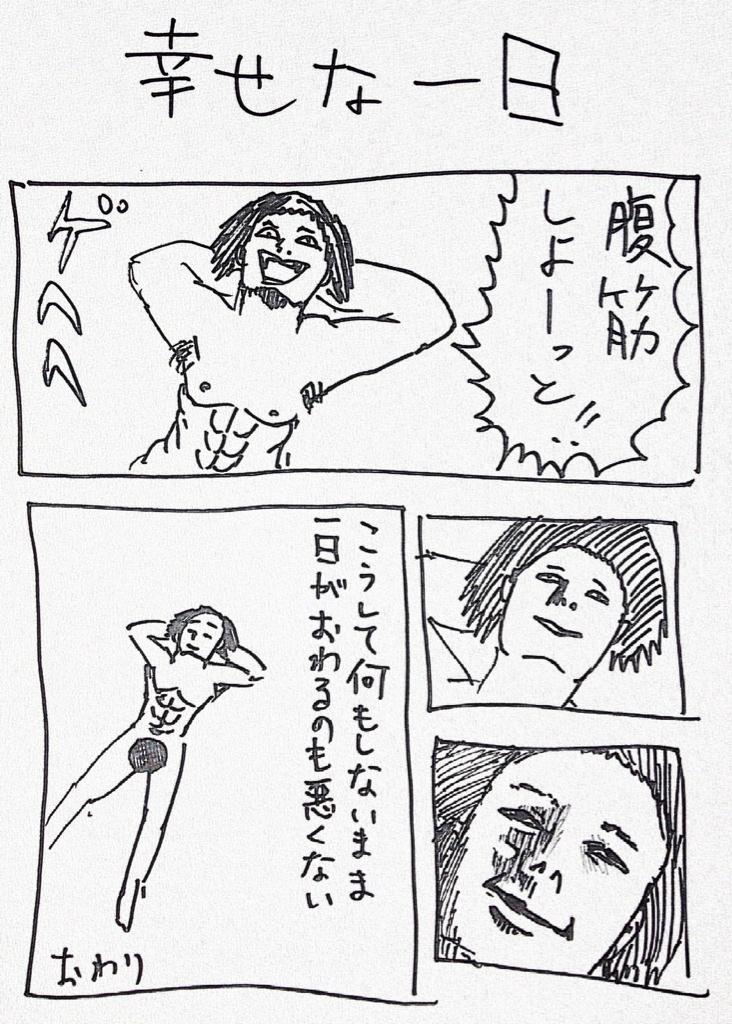 幸せな一日
腹筋
しよーっと!!
ゲラララ
こうして何もしないまま
一日がおわるのも悪くない
おわり